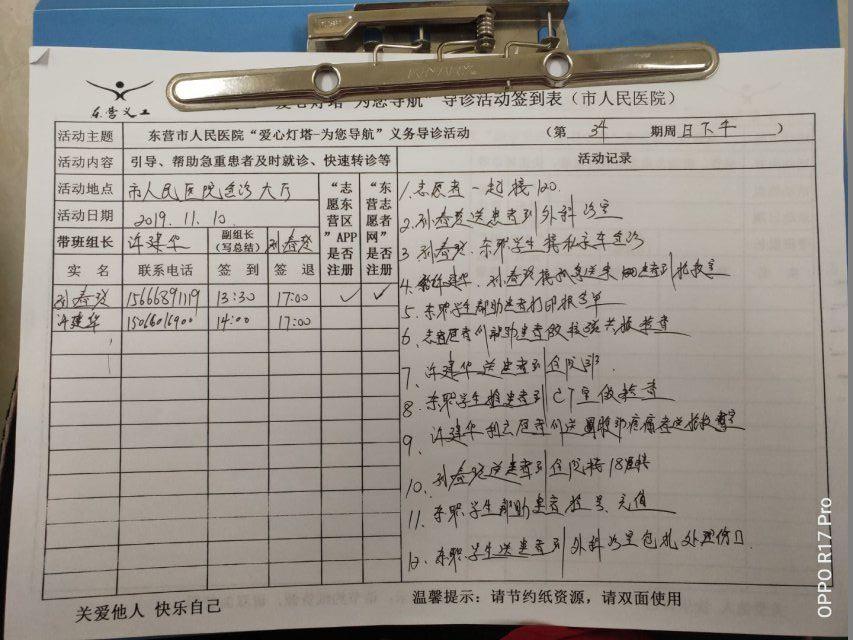 东营义工
"爱心灯塔-为您导航" 导诊活动签到表(市人民医院)
活动主题 东营市人民医院"爱心灯塔-为您导航"义务导诊活动 (第 34 期周日下午)
活动内容 引导、帮助急重患者及时就诊、快速转诊等 活动记录
活动地点 市人民医院急诊大厅
活动日期 2019.11.10
带班组长 许建华 副组长(写总结) 孙春
"志愿东营区"APP是否注册
"东营志愿者网"是否注册
实名 联系电话 签到 签退
孙春 15666891119 13:30 17:00 ✓ ✓
许建华 15066016900 14:00 17:00
1. 志愿者一起接120.
2. 孙春 送患者到外科诊室
3 孙春 东职学生接私家车急诊
4. 许建华、孙春 送来 患者到抢救室
5. 东职学生帮助患者打印报告单
6. 志愿者们帮助患者做核磁共振检查
7、许建华送患者到住院部.
8、东职学生推患者到CT室做检查
9、许建华和志愿者们送 疼痛者送抢救室
10、孙春 送患者到住院 18楼
11、东职学生帮助患者挂号、充值
12、东职学生送患者到外科诊室包扎处理伤口.
关爱他人 快乐自己
温馨提示:请节约纸资源,请双面使用
OPPO R17 Pro